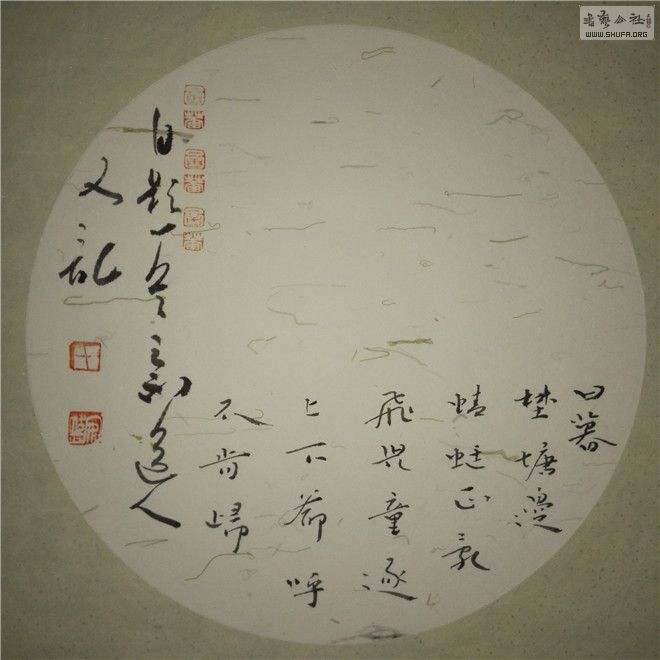 日暮
埜塘邊
蜻蜓正亂
飛兒童逐
上下爺呼
不肯歸
自題一 道人
又記
書藝公社
WWW.SHUFA.ORG